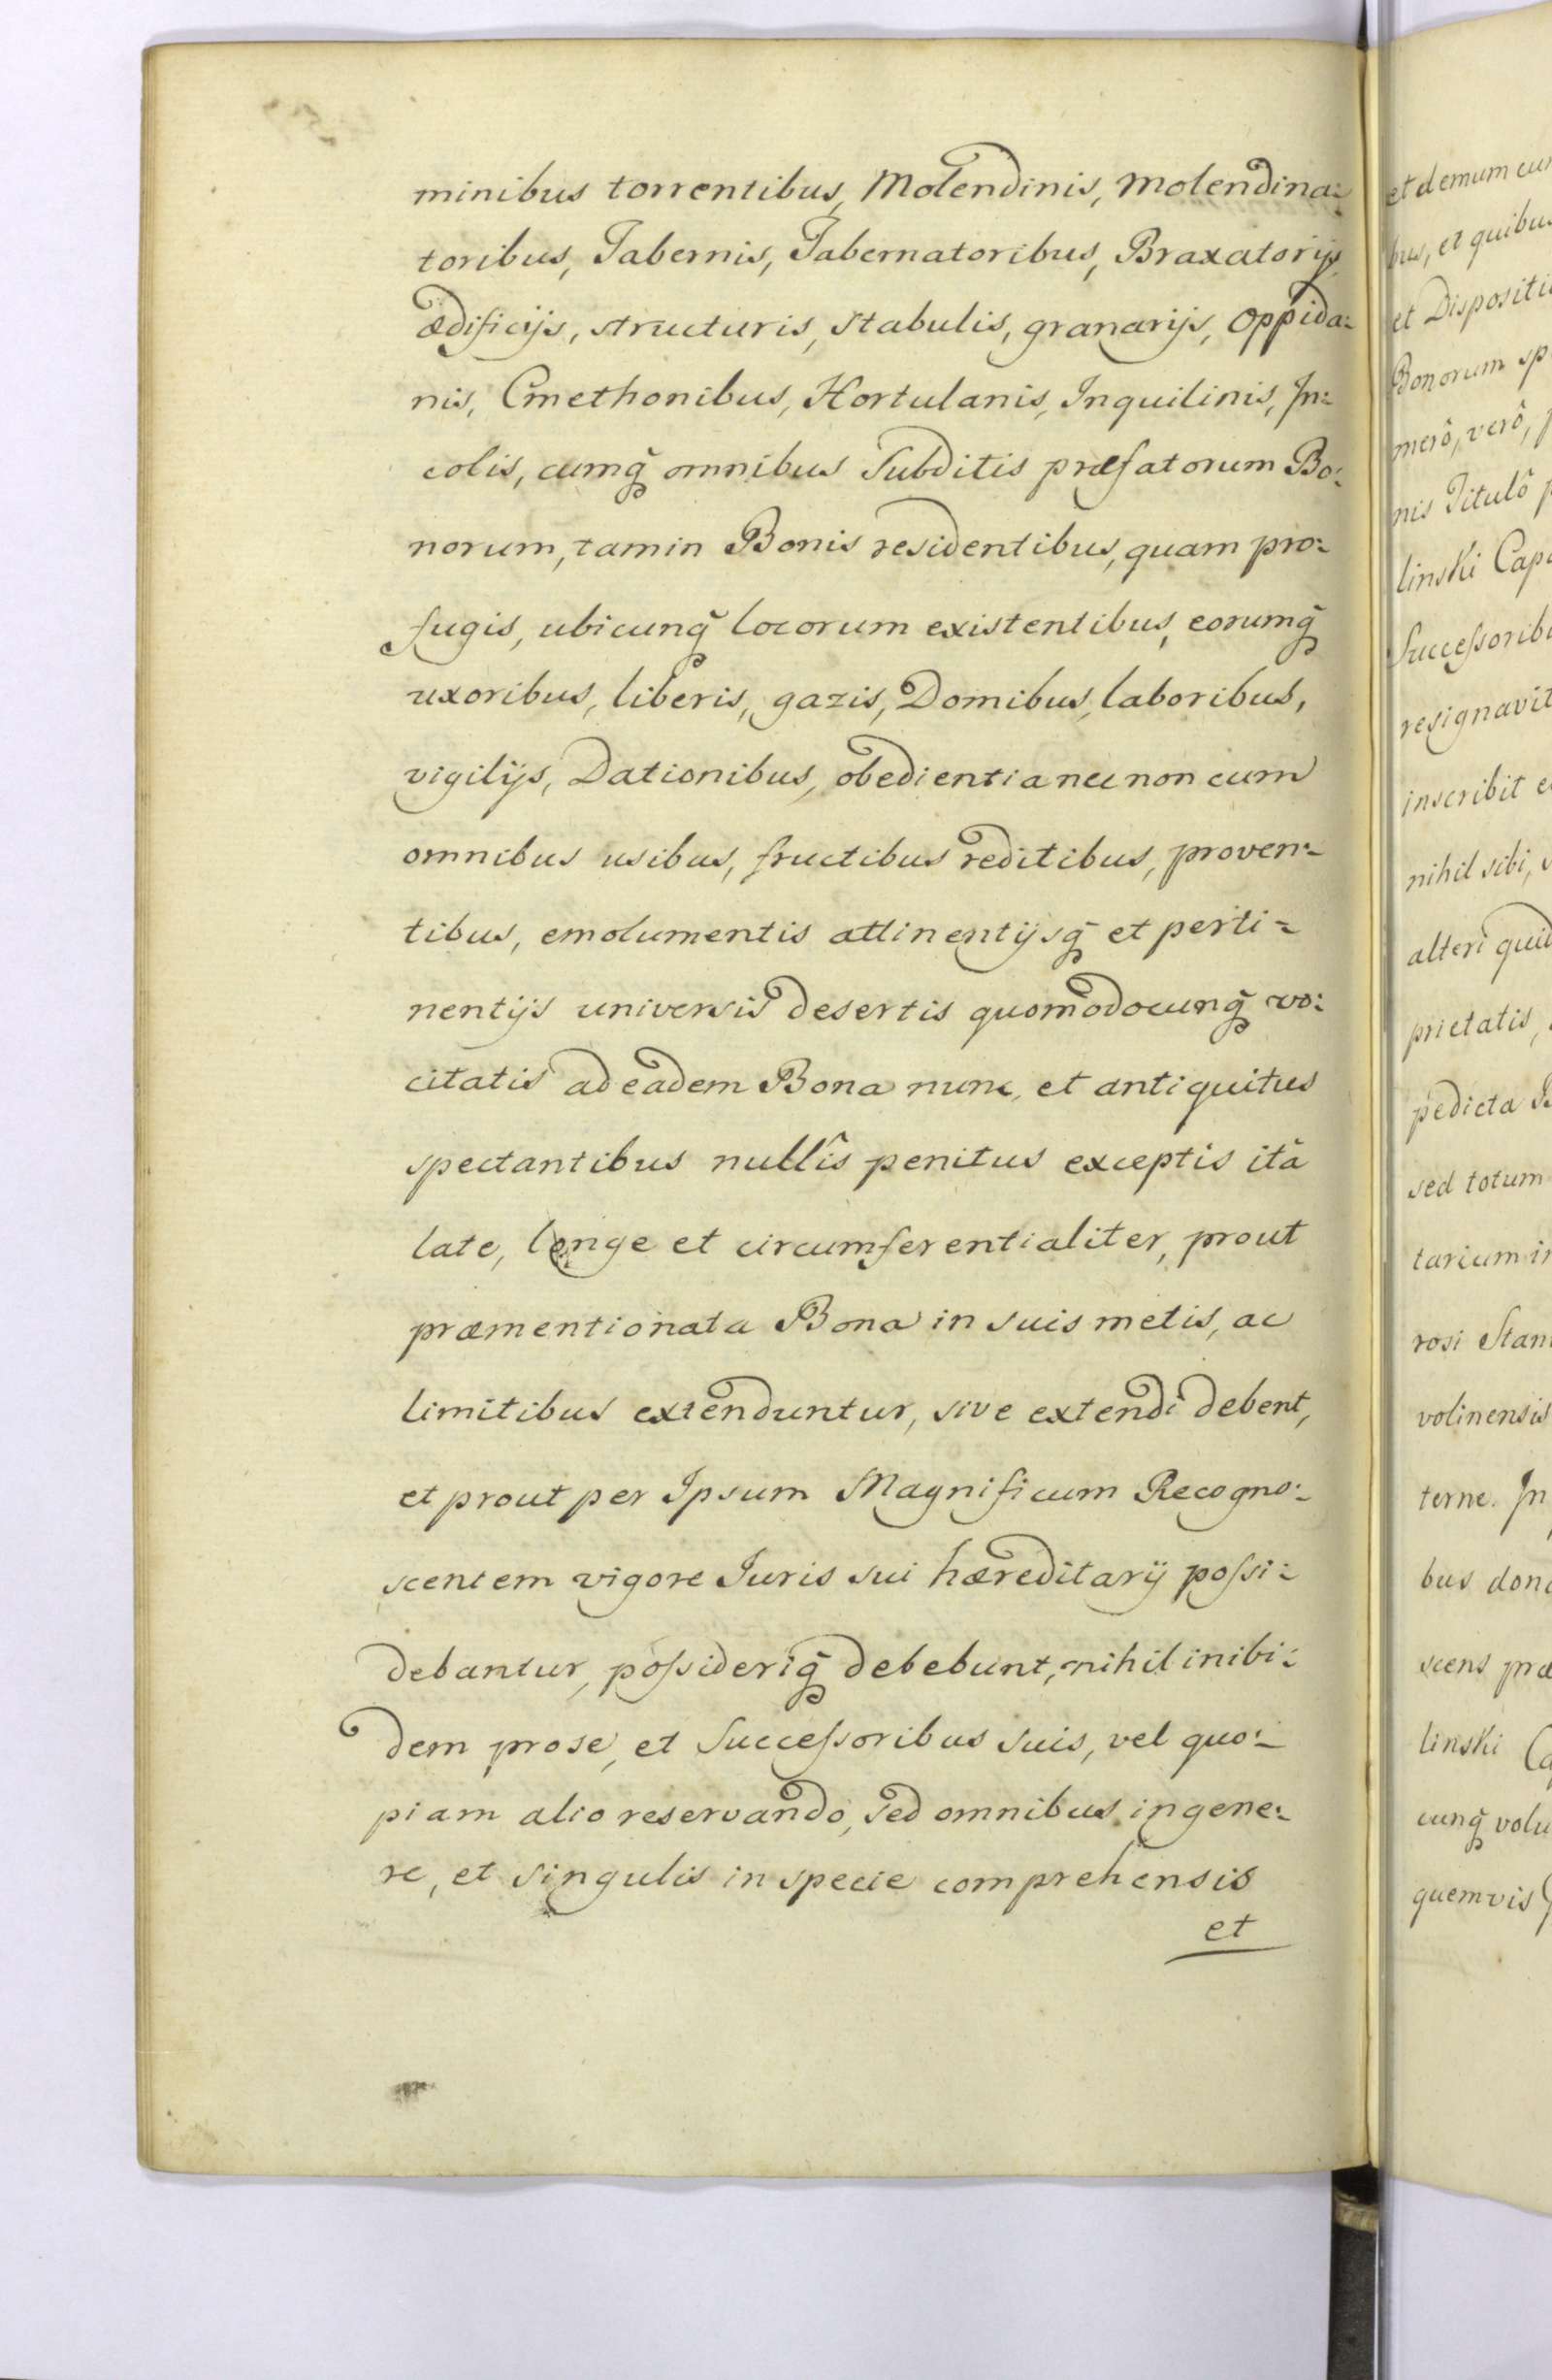 minibus torrentibus, Molendinis, Molendina:
toribus, Tabernis, Tabernatoribus, Braxatorijs
ædificijs, structuris, stabulis, granarijs, Oppida:
nis, Cmethonibus, Hortulanis, Inquilinis, In:
colis, cumq̃ omnibus Subditis præfatorum Bo:
norum, tam in Bonis residentibus, quam pro:
fugis, ubicunq̃ locorum existentibus, eorumq̃
uxoribus, liberis, gazis, Domibus, laboribus,
vigilijs, Dationibus, obedientia nec non cum
omnibus usibus, fructibus reditibus, proven:
tibus, emolumentis attinentijsq̃ et perti:
nentijs universis desertis quomodocunq̃ vo:
citatis ad eadem Bona nunc, et antiquitus
spectantibus nullîs penitus exceptis ità
late, longe et circumferentialiter, prout
præmentionata Bona in suis metis, ac
limitibus extenduntur, sive extendi debent,
et prout per Ipsum Magnificum Recogno:
scentem vigore Iuris sui hæreditarij poſsi:
debantur, poſsideriq̃ debebunt, nihil inibi:
dem pro se, et Succeſsoribus suis, vel quo:
piam alio reservando, sed omnibus in gene:
re, et singulis in specie comprehensis
et
et demum cu
bus, et quibus
et Dispositi
Bonorum sp
merô, verô, p
nis Titulô p
linski Cap
Succeſsorib
resignavit
inscribit e
nihil sibi, v
alteri quid
prietatis,
pedicta B
sed totum
tarium in
rosi Stan
volinensis
terne. In
bus don
scens præ
linski Ca
cunq̃ volu
quemvis